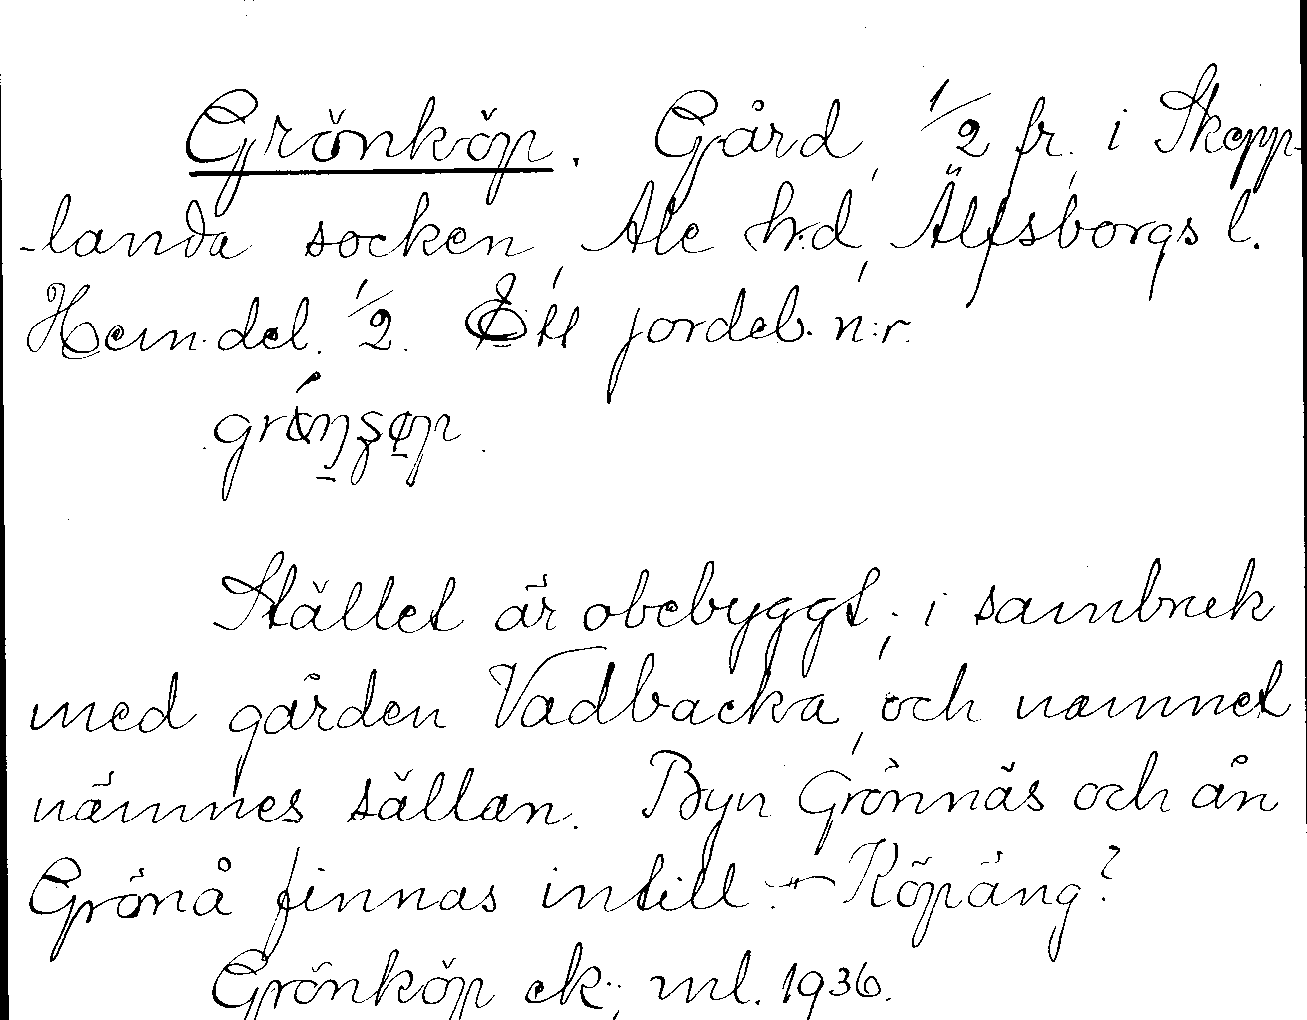 Grönköp. Gård, 1/2 fr. i Skepp-
-landa socken, Ale h:d, Älfsborgs l.
Hem.del. 1/2. Ett jordeb. n:r.
Stället är obebyggt; i sambruk
med gården Vadbacka, och namnet
nämnes sällan. Byn Grönnäs och ån
Grönå finnas intill. – Köpäng?
Grönköp ek.; ml. 1936.